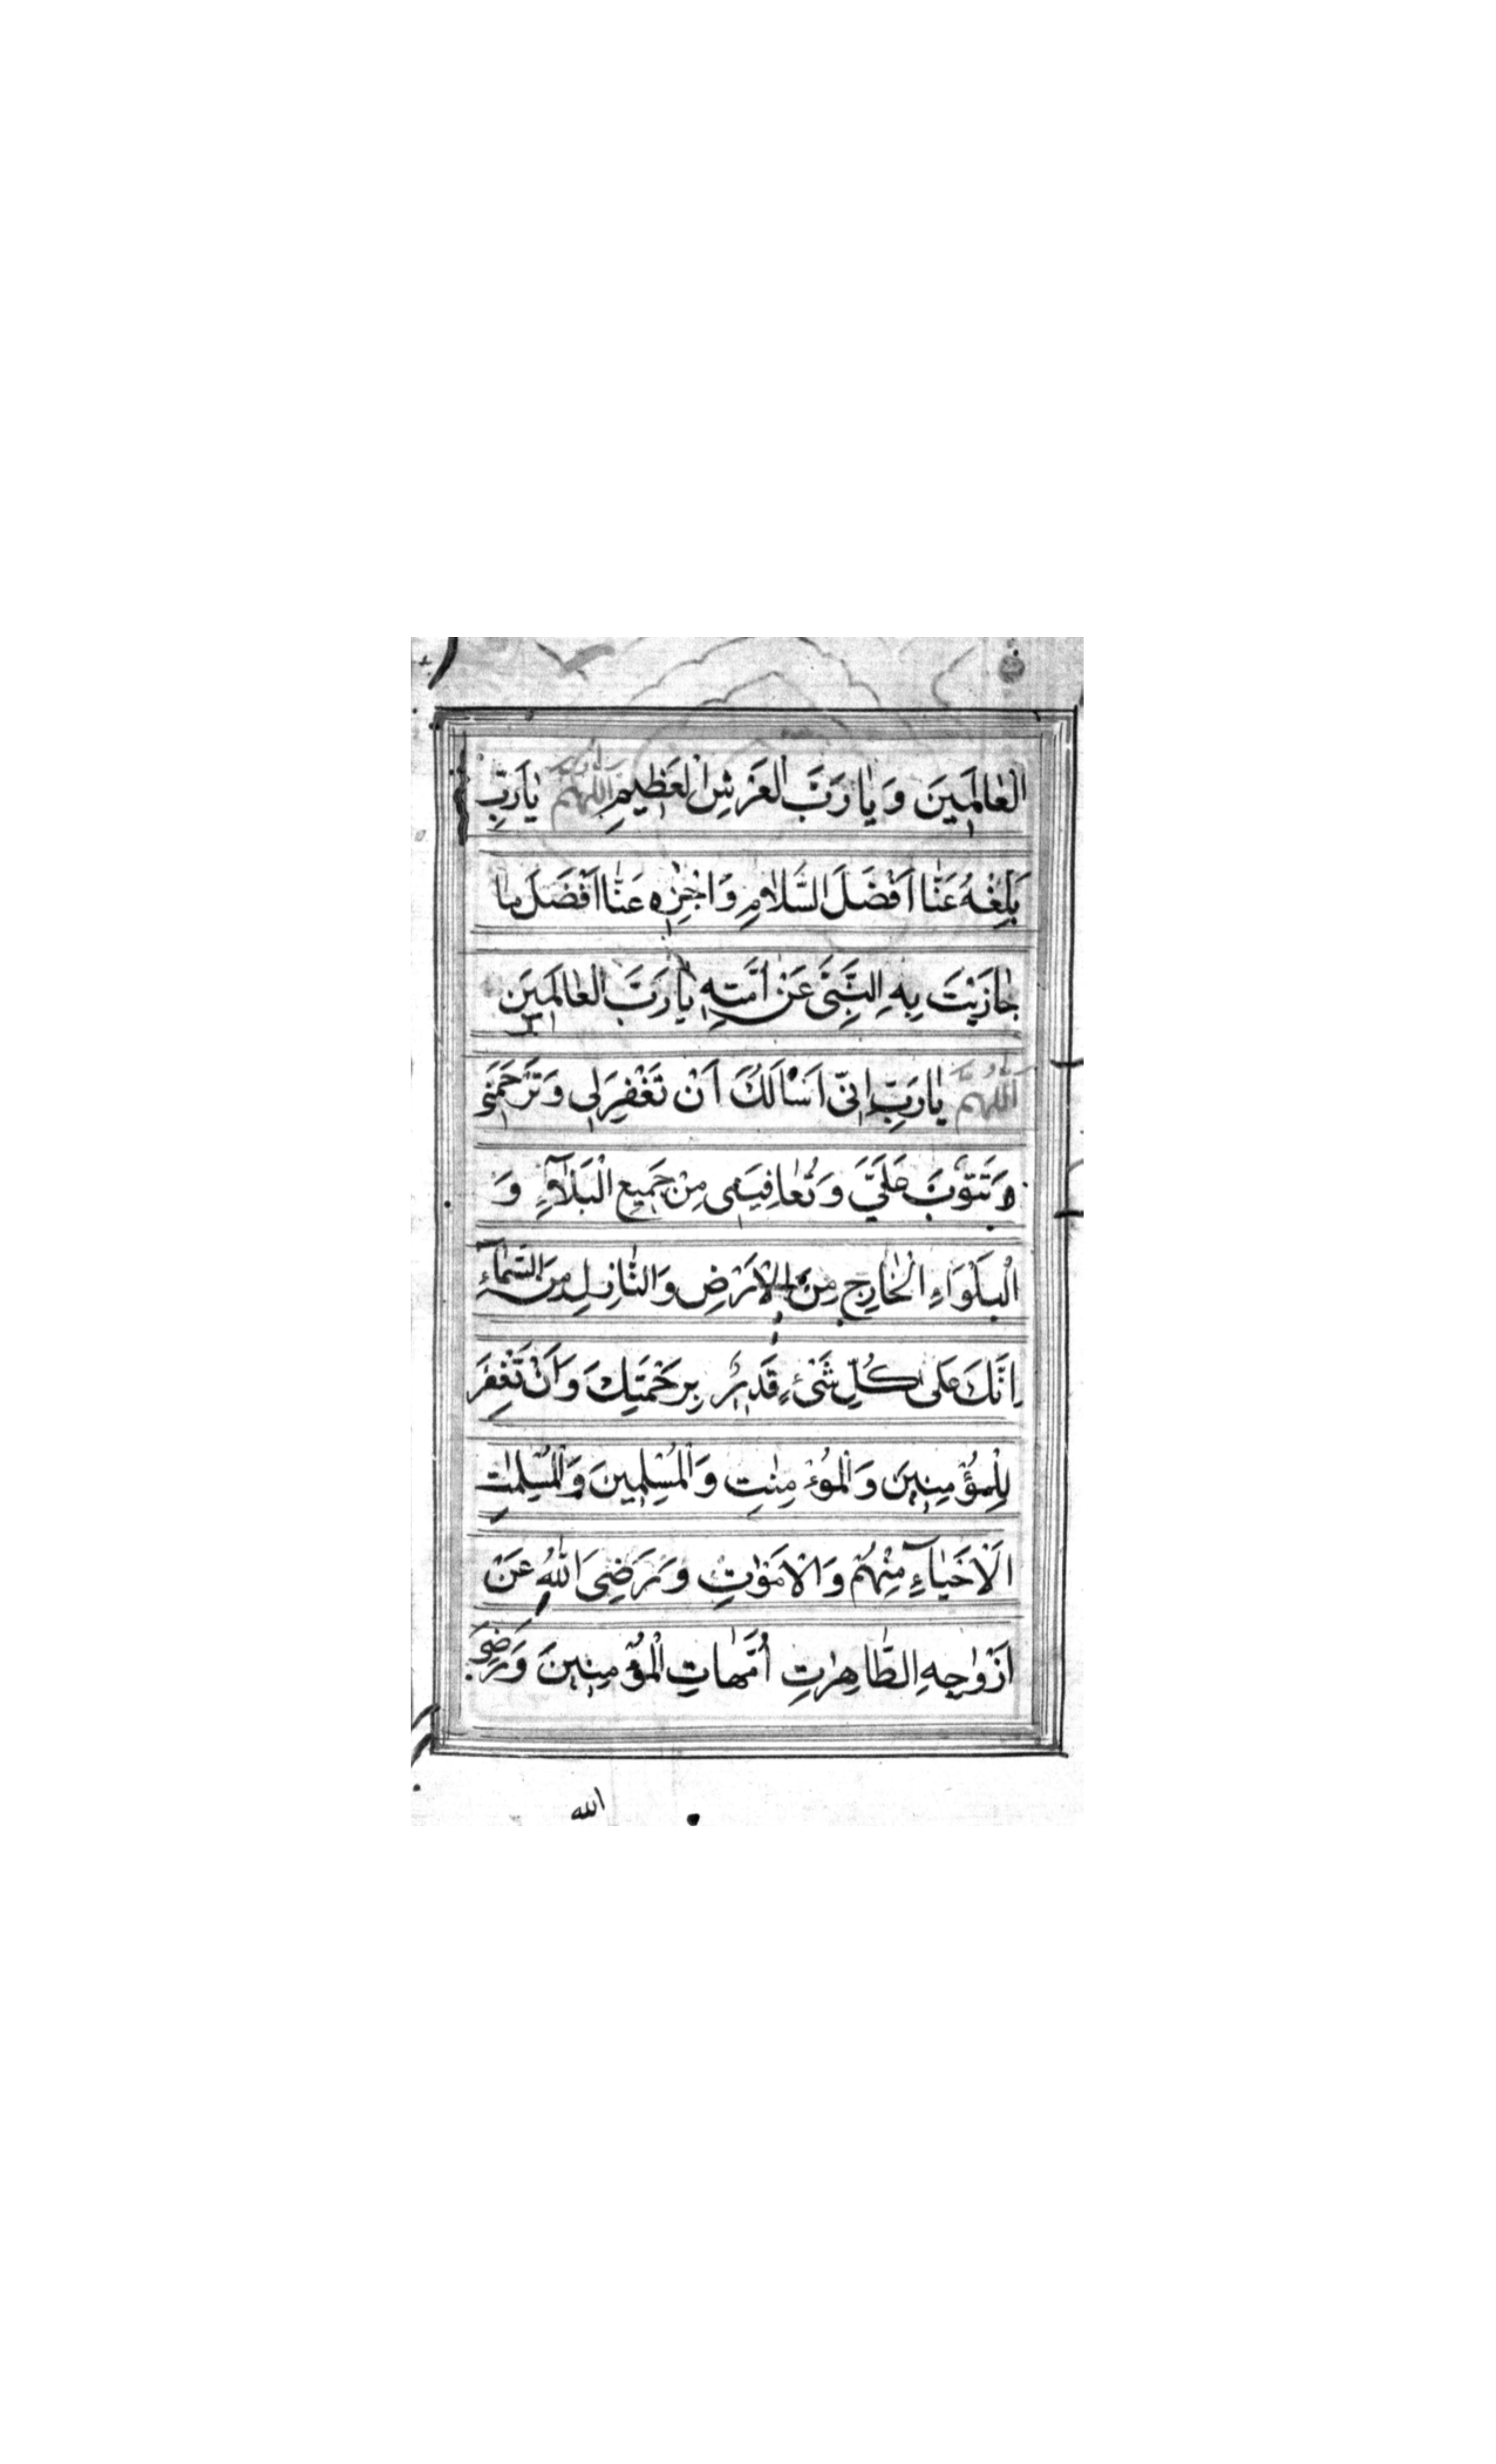 الْعٰالَمِينَ وَيٰا رَبَّ الْعَرْشِ الْعَظِيمِ اَللّٰهُمَّ يٰارَبِّ
بَلِّغْهُ عَنّٰا اَفْضَلَ السَّلٰامِ وَاجْزِهِ عَنّٰا اَفْضَلَ مٰا
جٰازَيْتَ بِهِ النَّبِىَّ عَنْ اُمَّتِهِ يٰا رَبَّ الْعٰالَمِينَ
اَللّٰهُمَّ يٰارَبِّ اِنِّى اَسْاَلُكَ اَنْ تَغْفِرَلِى وَتَرْحَمَنِى
وَتَتُوبَ عَلَيَّ وَتُعٰافِيَنِى مِنْ جَمِيعِ الْبَلٰآءِ وَ
الْبَلْوَاءِ الْخٰارِجِ مِنَ الْاَرْضِ وَالنّٰازِلِ مِنَ السَّمٰآءِ
اِنَّكَ عَلٰى كُلِّ شَىْءٍ قَدِيرٌ بِرَحْمَتِكَ وَاَنْ تَغْفِرَ
لِلْمُؤْمِنِينَ وَالْمُؤْمِنٰتِ وَالْمُسْلِمِينَ وَالْمُسْلِمٰتِ
الْاَحْيٰآءِ مِنْهُمْ وَالْاَمْوٰاتِ وَرَضِىَ اللّٰهُ عَنْ
اَزْوٰاجِهِ الطّٰاهِرٰتِ اُمَّهٰاتِ الْمُؤْمِنِينَ وَرَضِىَ
الله